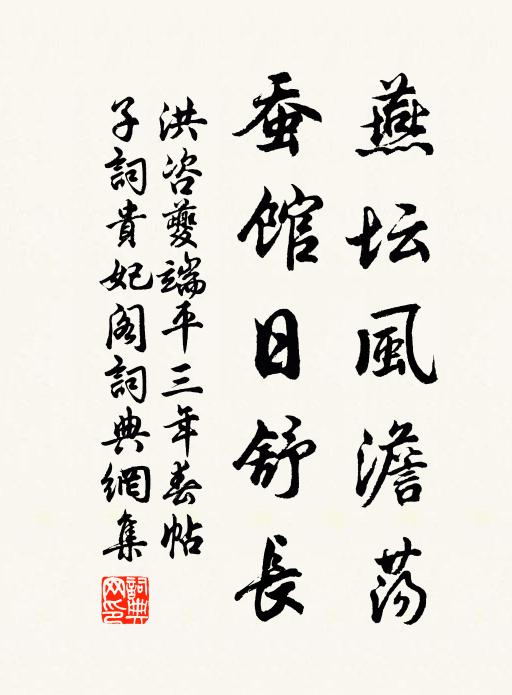 燕坛風澹荡
蚕馆日舒長
洪咨夔端平三年春帖
子詞貴妃阁詞典網集
詞典網印